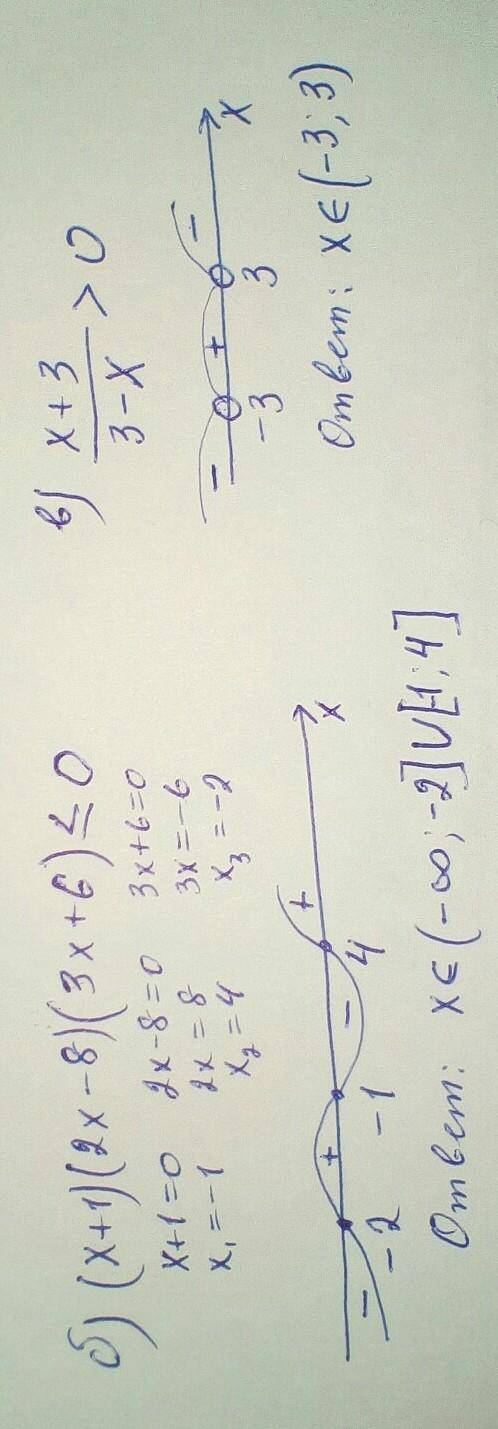 б) (x+1)(2x-8)(3x+6) ≤ 0
x+1=0 2x-8=0 3x+6=0
x₁=-1 2x=8 3x=-6
x₂=4 x₃=-2
- + - + x
-2 -1 4
Ответ: x∈(-∞; -2]∪[-1; 4]
в) x+3 / 3-x > 0
- + - x
-3 3
Ответ: x∈(-3; 3)